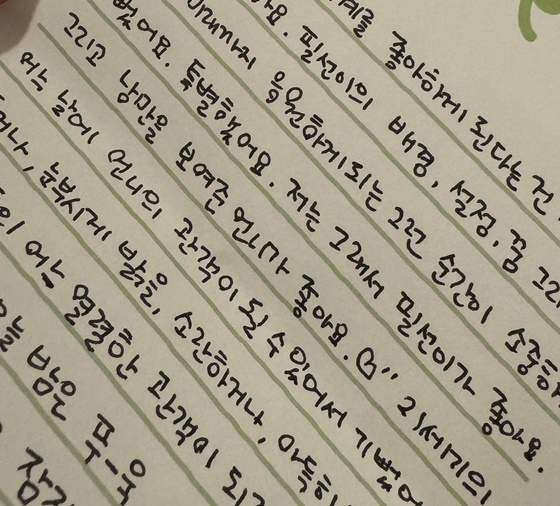 계를 좋아하게 된다는 건
요. 필선이의 배경, 설정, 꿈 그
미래까지 응원하게되는 그런 순간이 소중해
웠어요. 특별했어요. 저는 그래서 필선이가 좋아요.
그리고 낭만을 보여준 언니가 좋아요. ♡" 21세기의
어느 날에 언니의 관객이 될 수 있어서 기뻤어
거나, 눈부시게 밝을, 소란하거나, 어둑하
의 어느 열렬한 관객이 되
밤은 푸우